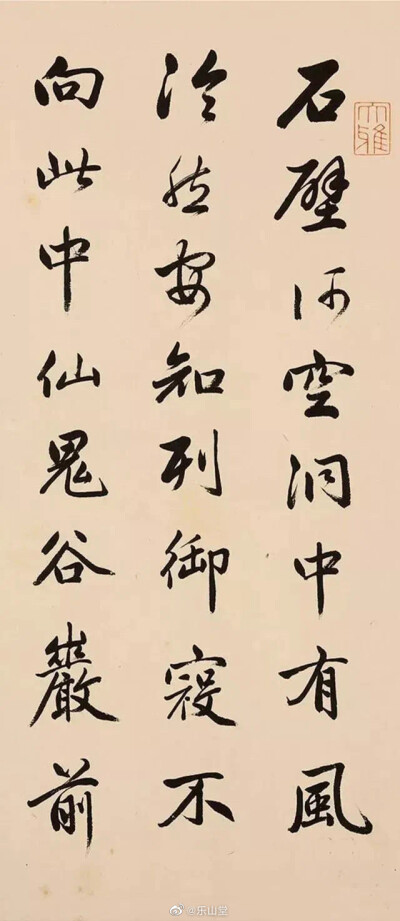 大雅
石壁何空洞中有風
泠然安知列御寇不
向此中仙鬼谷巖前